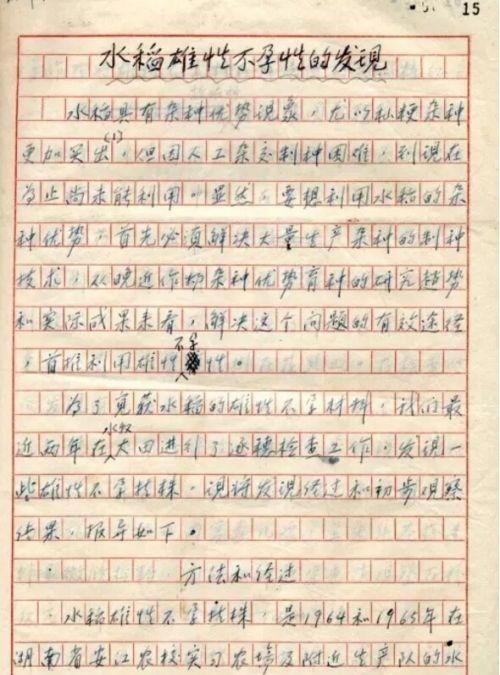 15
水稻雄性不孕性的发现
水稻具有杂种优势现象，尤以籼粳杂种
更加突出(1)，但因人工杂交制种困难，到现在
为止尚未能利用。显然，要想利用水稻的杂
种优势，首先必须解决大量生产杂种的制种
技术，从晚近作物杂种优势育种的研究趋势
和实际成果来看，解决这个问题的有效途径
，首推利用雄性不孕性。
为了获水稻的雄性不孕材料，我们最
近两年在水稻大田进行了逐穗检查工作，发现一
些雄性不孕植株，现将发现经过和初步观察
结果，报导如下。
方法和经过
水稻雄性不孕植株，是1964和1965年在
湖南省安江农校实习农场及附近生产队的水